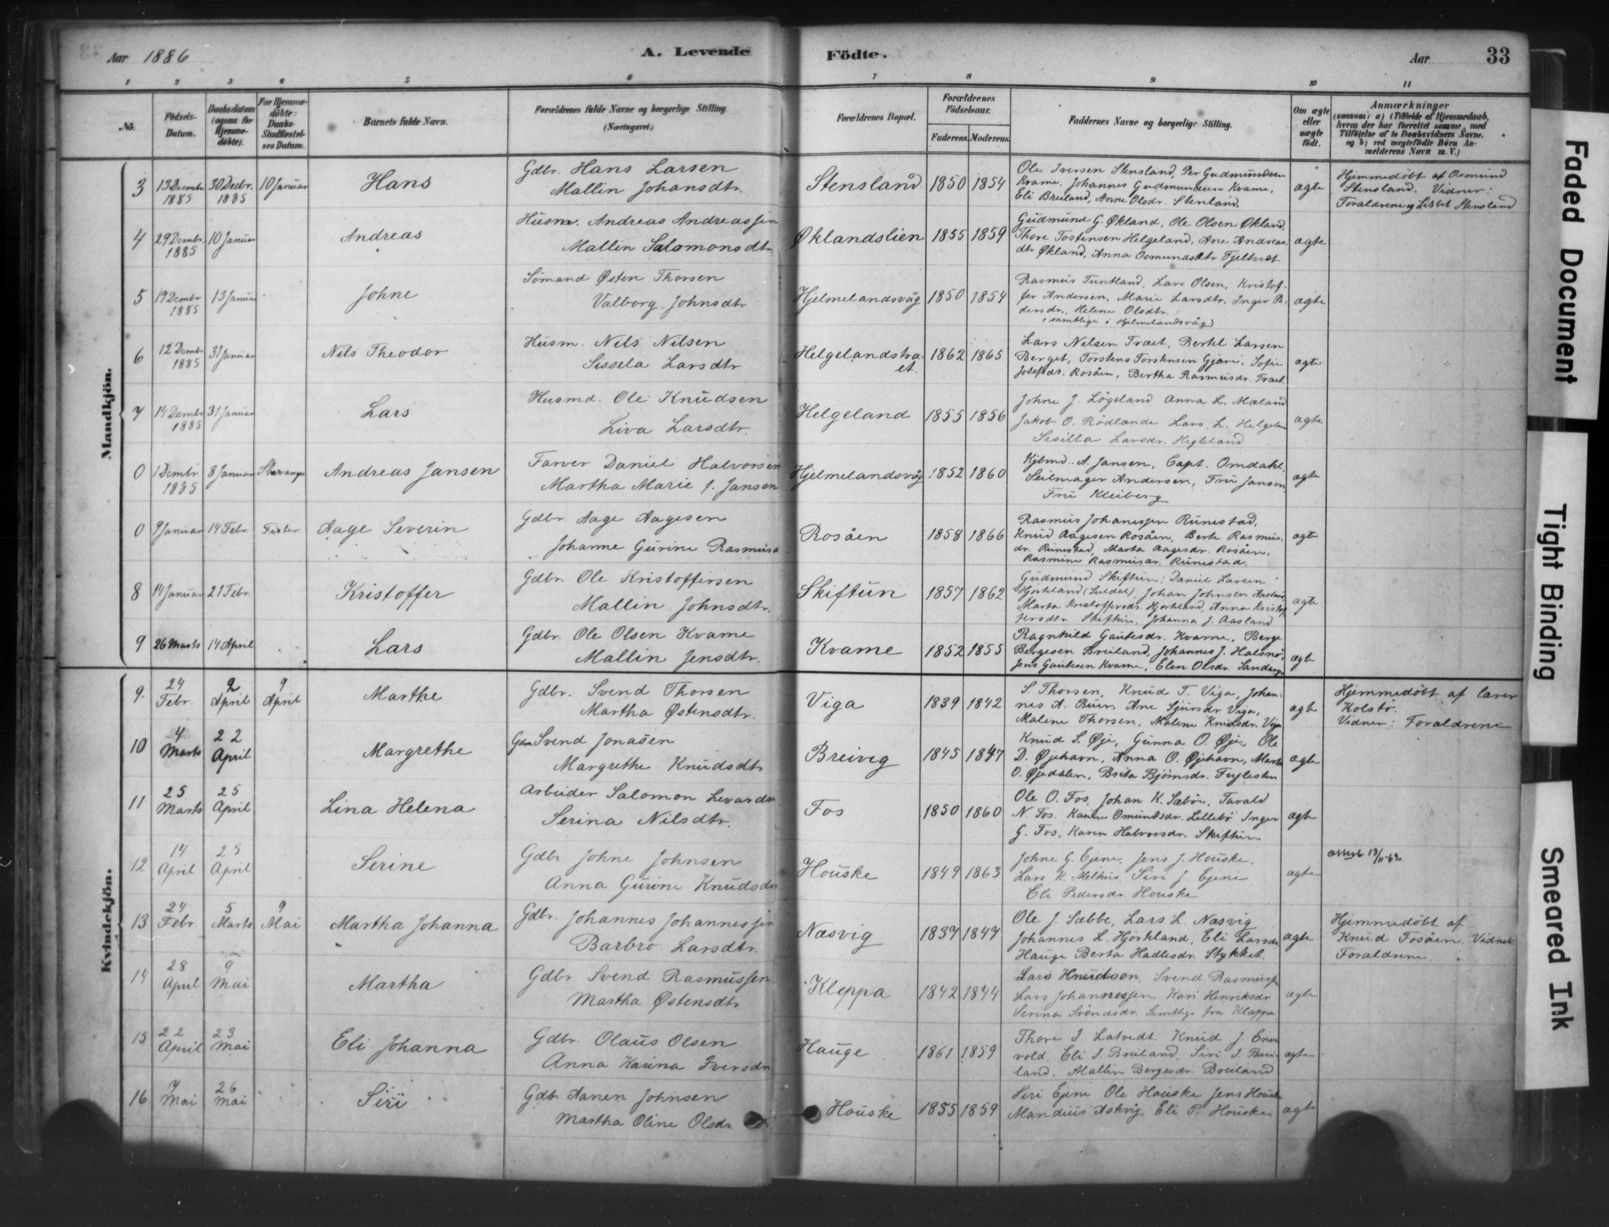 Aar 1886
A. Levende
Födte.
Aar
33
1 2 3 4 5 6 7 8 9 10 11
No.
Födsels-Datum.
Daabsdatum (ogsaa for Hjemme-döbte).
For Hjemme-döbte: Daabs-Stadfæstel-ses Datum.
Barnets fulde Navn.
Forældrenes fulde Navne og borgerlige Stilling. (Næringsvei.)
Forældrenes Bopæl.
Forældrenes Födselsaar.
Faderens. Moderens.
Faddernes Navne og borgerlige Stilling.
Om ægte eller uægte födt.
Anmærkninger (saasom: a) i Tilfælde af Hjemmedaab, hvem der har forrettet samme, med Tilföielse af to Daabsvidners Navne, og b) ved uægtefödte Börn An-melderens Navn m. V.)
Mandkjön.
3 13 Decembr 1885 30 Decbr. 1885 10 Januar Hans
Gdbr. Hans Larsen
Mallin Johansdtr.
Stensland 1850 1854
Ole Iversen Stensland, Per Gudmundsen
Kvame, Johannes Gudmundsen Kvame,
Eli Breiland, Anne Olsdr. Stensland.
ægte
Hjemmedöbt af Osmund
Stensland. Vidner:
Forældrene og Lisbet Stensland
4 29 Decmbr. 1885 10 Januar Andreas
Husm. Andreas Andreassen
Mallin Salomonsdtr.
Øklandslien 1855 1859
Gudmund G. Økland, Ole Olsen Økland,
Thore Tostensen Helgeland, Ane Andreas
dtr Økland, Anna Osmundsdtr Fjeltvedt
ægte
5 19 Decmbr 1885 13 Januar Johne
Sömand Østen Thorsen
Valborg Johnsdtr
Hjelmelandsvåg 1850 1854
Rasmus Tuntland, Lars Olsen, Kristof-
fer Andersen, Marie Larsdtr, Inger Pe
dersdr., Helene Olsdtr.
(samtlige i Hjelmelandsvåg)
ægte
6 12 Decmbr 1885 31 Januar Nils Theodor
Husm. Nils Nilsen
Sissela Larsdtr
Helgelandstra
et. 1862 1865
Lars Nilsen Træt, Bertel Larsen
Berget, Torstens Torstensen Gjøre, Sofie
Josefsdr. Rosåen, Bertha Rasmusdr. Træt
ægte
7 14 Decmbr 1885 31 Januar Lars
Husmd. Ole Knudsen
Liva Larsdtr.
Helgeland 1855 1856
Johne J. Lögeland Anna L. Mæland
Jakob O. Rödlande Lars L. Helgelan
Sisilla Larsdr. Heglland
ægte
0 1 Decmbr 1885 8 Januar Stavanger Andreas Jansen
Farver Daniel Halvorsen
Martha Marie f. Jansen
Hjelmelandsvåg 1852 1860
Kjbmd. A. Jansen, Capt. Omdahl,
Seilmager Andersen, Fru Jansen
Fru Kleiberg
ægte
0 9 Januar 14 Febr. Fister Aage Severin
Gdbr Aage Aagesen
Johanne Gurine Rasmusd
Rosåen 1858 1866
Rasmus Johanessen Runestad,
Knud Aagesen Rosåen, Berte Rasmus-
dr. Runestad, Marta Aagesdr. Rosåen,
Rasmine Rasmusdr. Runestad.
ægte
8 14 Januar 21 Febr. Kristoffer
Gdbr. Ole Kristoffersen
Mallin Johnsdtr.
Skiftun 1857 1862
Gudmund Skiftun, Daniel Larsen
Hjorteland (Suldal), Johan Johnsen Aasland
Marta Kristoffersdr. Hjorteland, Anna Kristof
fersdtr. Skiftun, Johanna J. Aasland
ægte
9 26 Marts 14 April Lars
Gdbr. Ole Olsen Kvame
Mallin Jensdtr.
Kvame 1852 1855
Ragnhild Gautesdr. Kvame, Berge
Bergesen Breiland, Johannes J. Halsnö,
Jens Gautesen Kvame, Elen Olsdr. Sandanger
ægte
Kvindekjön.
9. 24 Febr. 2 April 9 April Marthe
Gdbr. Svend Thorsen
Martha Østensdtr.
Viga 1839 1842
S. Thorsen, Knud T. Viga, Johan-
nes A. Buer, Ane Sjursdr Viga,
Malene Thorsen, Malene Knudsdr. Viga
ægte
Hjemmedöbt af lærer
Kolstø.
Vidner: Forældrene
10 4 Marts 22 April Margrethe
Gdbr Svend Jonasen
Margrethe Knudsdtr
Breiveg 1845 1847
Knud S. Øje, Gunna O. Øje, Ole
D. Øjehavn, Anna O. Øjehavn, Marta
O. Øjedalen, Brita Björnsdr. Teglesten
ægte
11 25 Marts 25 April Lina Helena
Arbeider Salomon Levardsen
Serina Nilsdtr.
Fos 1850 1860
Ole O. Fos, Johan K. Sæbö, Tarald
N. Fos. Karine Omundsdr. Lillebö Inger
G. Fos, Karen Halvorsdr. Skiftun
ægte
12 14 April 25 April Serine
Gdbr. Johne Johnsen
Anna Gurine Knudsdr
Houske 1849 1863
Johne G. Ejene, Jens J. Houske,
Lars K. Melhus, Siri J. Ejene
Eli Pedersdr Houske
ægte
attest 13/11-63.
13 24 Febr. 5 Marts 9 Mai Martha Johanna
Gdbr. Johannes Johannessen
Barbro Larsdtr.
Næsvig 1837 1847
Ole J. Sæbbe, Lars L. Næsvig
Johannes L. Hjorteland, Eli Larsdr
Hauge Berta Hadlesdr. Stykket
ægte
Hjemmedöbt af
Knud Fosåen. Vidner:
Forældrene.
14 28 April 9 Mai Martha
Gdbr. Svend Rasmussen
Martha Østensdtr
Kleppa 1842 1844
Lars Knudson, Svend Rasmussen
Lars Johannessen, Kari Henriksdr
Serina Svendsdr. Samtlige fra Kleppa
ægte
15 22 April 23 Mai Eli Johanna
Gdbr. Olaus Olsen
Anna Karina Iversdtr
Hauge 1861 1859
Thore I. Latvedt, Knud J. Ener
vold, Eli I. Breiland, Siri I. Brei-
land, Mallin Bergesdr. Breiland
ægte
16 7 Mai 26 Mai Siri
Gdbr Hanen Johnsen
Martha Oline Olsdr.
Houske 1855 1859
Siri Ejene Ole Houske Jens Houske
Mandius Askvig, Eli P. Houske
ægte
Faded Document
Tight Binding
Smeared Ink